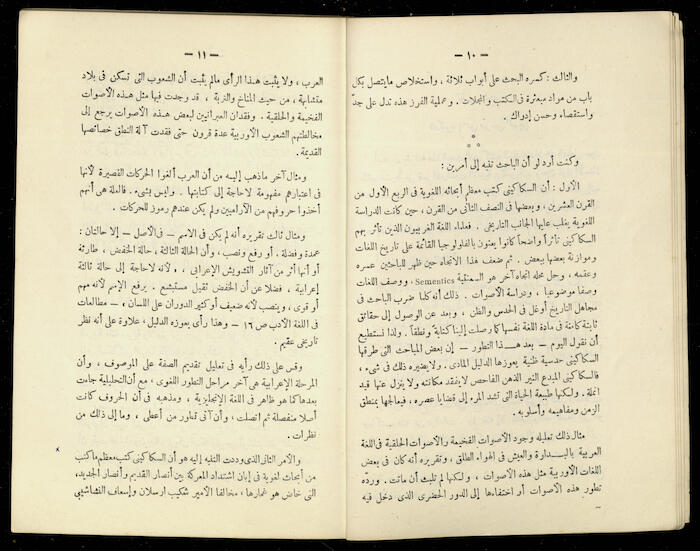 — ١٠ —
والثالث : كسره البحث على أبواب ثلاثة ، واستخلاص مايتصل بكل
باب من مواد مبعثرة فى الكتب والمجلات . وعملية الفرز هذه تدل على جدّ
واستقصاء وحسن إدراك .
وكنت أود لو أن الباحث تنبه إلى أمرين :
الأول : أن السكاكينى كتب معظم أبحاثه اللغوية فى الربع الأول من
القرن العشرين ، وبعضها فى النصف الثانى من القرن ، حين كانت الدراسة
اللغوية يغلب عليها الجانب التاريخى . فعلماء اللغة الغربيون الذين تأثر بهم
السكاكينى تأثراً واضحاً كانوا يعنون بالفلولوجيا القائمة على تاريخ اللغات
وموازنة بعضها ببعض . ثم ضعف هذا الاتجاه حين ظهر للباحثين عسره
وعقمه ، وحل محله اتجاه آخر هو السمنتية Sementics ووصف اللغات
وصفا موضوعيا ، ودراسة الأصوات . ذلك أنه كلما ضرب الباحث فى
مجاهل التاريخ أوغل فى الحدس والظن ، وبعد عن الوصول إلى حقائق
ثابتة كامنة فى مادة اللغة نفسها كما وصلت إلينا كتابة ونطقاً . ولذا نستطيع
أن نقول اليوم — بعد هذا التطور — إن بعض المباحث التى طرقها
السكاكينى حدسية ظنية يعوزها الدليل المادى . ولا يضيره ذلك فى شىء ،
فالسكاكينى المبدع النير الذهن الفاحص لا يفقد مكانته ولا ينزل عنها قيد
أنملة . ولكنها طبيعة الحياة التى تشد المرء إلى قضايا عصره ، فيعالجها بمنطق
الزمن ومفاهيمه وأسلوبه .
مثال ذلك تعليله وجود الأصوات الفخيمة والأصوات الحلقية فى اللغة
العربية بالبداوة والعيش فى الهواء الطلق ، وتقريره أنه كان فى بعض
اللغات الأوربية مثل هذه الأصوات ، ولكنها لم تلبث أن ماتت . وردّه
تطور هذه الأصوات أو اختفاءها إلى الدور الحضرى الذى دخل فيه
— ١١ —
العرب ، ولا يثبت هذا الرأى مالم يثبت أن الشعوب التى تسكن فى بلاد
متشابهة ، من حيث المناخ والتربة ، قد وجدت فيها مثل هذه الأصوات
الفخيمة والحلقية . وفقدان العبرانيين لبعض هذه الأصوات يرجع إلى
مخالطتهم الشعوب الأوربية عدة قرون حتى فقدت آلة النطق خصائصها
القديمة .
ومثال آخر ماذهب إليه من أن العرب ألغوا الحركات القصيرة لأنها
فى اعتبارهم مفهومة لاحاجة إلى كتابتها . وليس بشىء . فالعلة هى أنهم
أخذوا حروفهم من الآراميين ولم يكن عندهم رموز للحركات .
ومثال ثالث تقريره أنه لم يكن فى الاسم — فى الأصل — إلا حالتان :
عمدة وفضلة . أو رفع ونصب ، وأن الحالة الثالثة ، حالة الخفض ، طارئة
أو أنها أثر من آثار التشويش الإعرابى ، . ولأنه لاحاجة إلى حالة ثالثة
إعرابية ، فضلا عن أن الخفض ثقيل مستبشع . يرفع الاسم لأنه مهم
أو قوى ، وينصب لأنه ضعيف أو كثير الدوران على اللسان ، — مطالعات
فى اللغة الأدب ص ١٦ — وهذا رأى يعوزه الدليل ، علاوة على أنه نظر
تاريخى عقيم .
وقس على ذلك رأيه فى تعليل تقديم الصفة على الموصوف ، وأن
المرحلة الإعرابية هى آخر مراحل التطور اللغوى ، مع أن التحليلية جاءت
بعدها كما هو ظاهر فى اللغة الإنجليزية ، ومذهبه فى أن الحروف كانت
أصلا منفصلة ثم اتصلت ، وأن آتى تطور من أعطى ، وما إلى ذلك من
نظرات .
والأمر الثانى الذى وددت التنبه إليه هو أن السكاكينى كتب معظم ما كتب
من أبحاث لغوية فى إبان اشتداد المعركة بين أنصار القديم وأنصار الجديد ،
التى خاض هو غمارها ، مخالفا الأمير شكيب أرسلان وإسعاف النشاشيبى